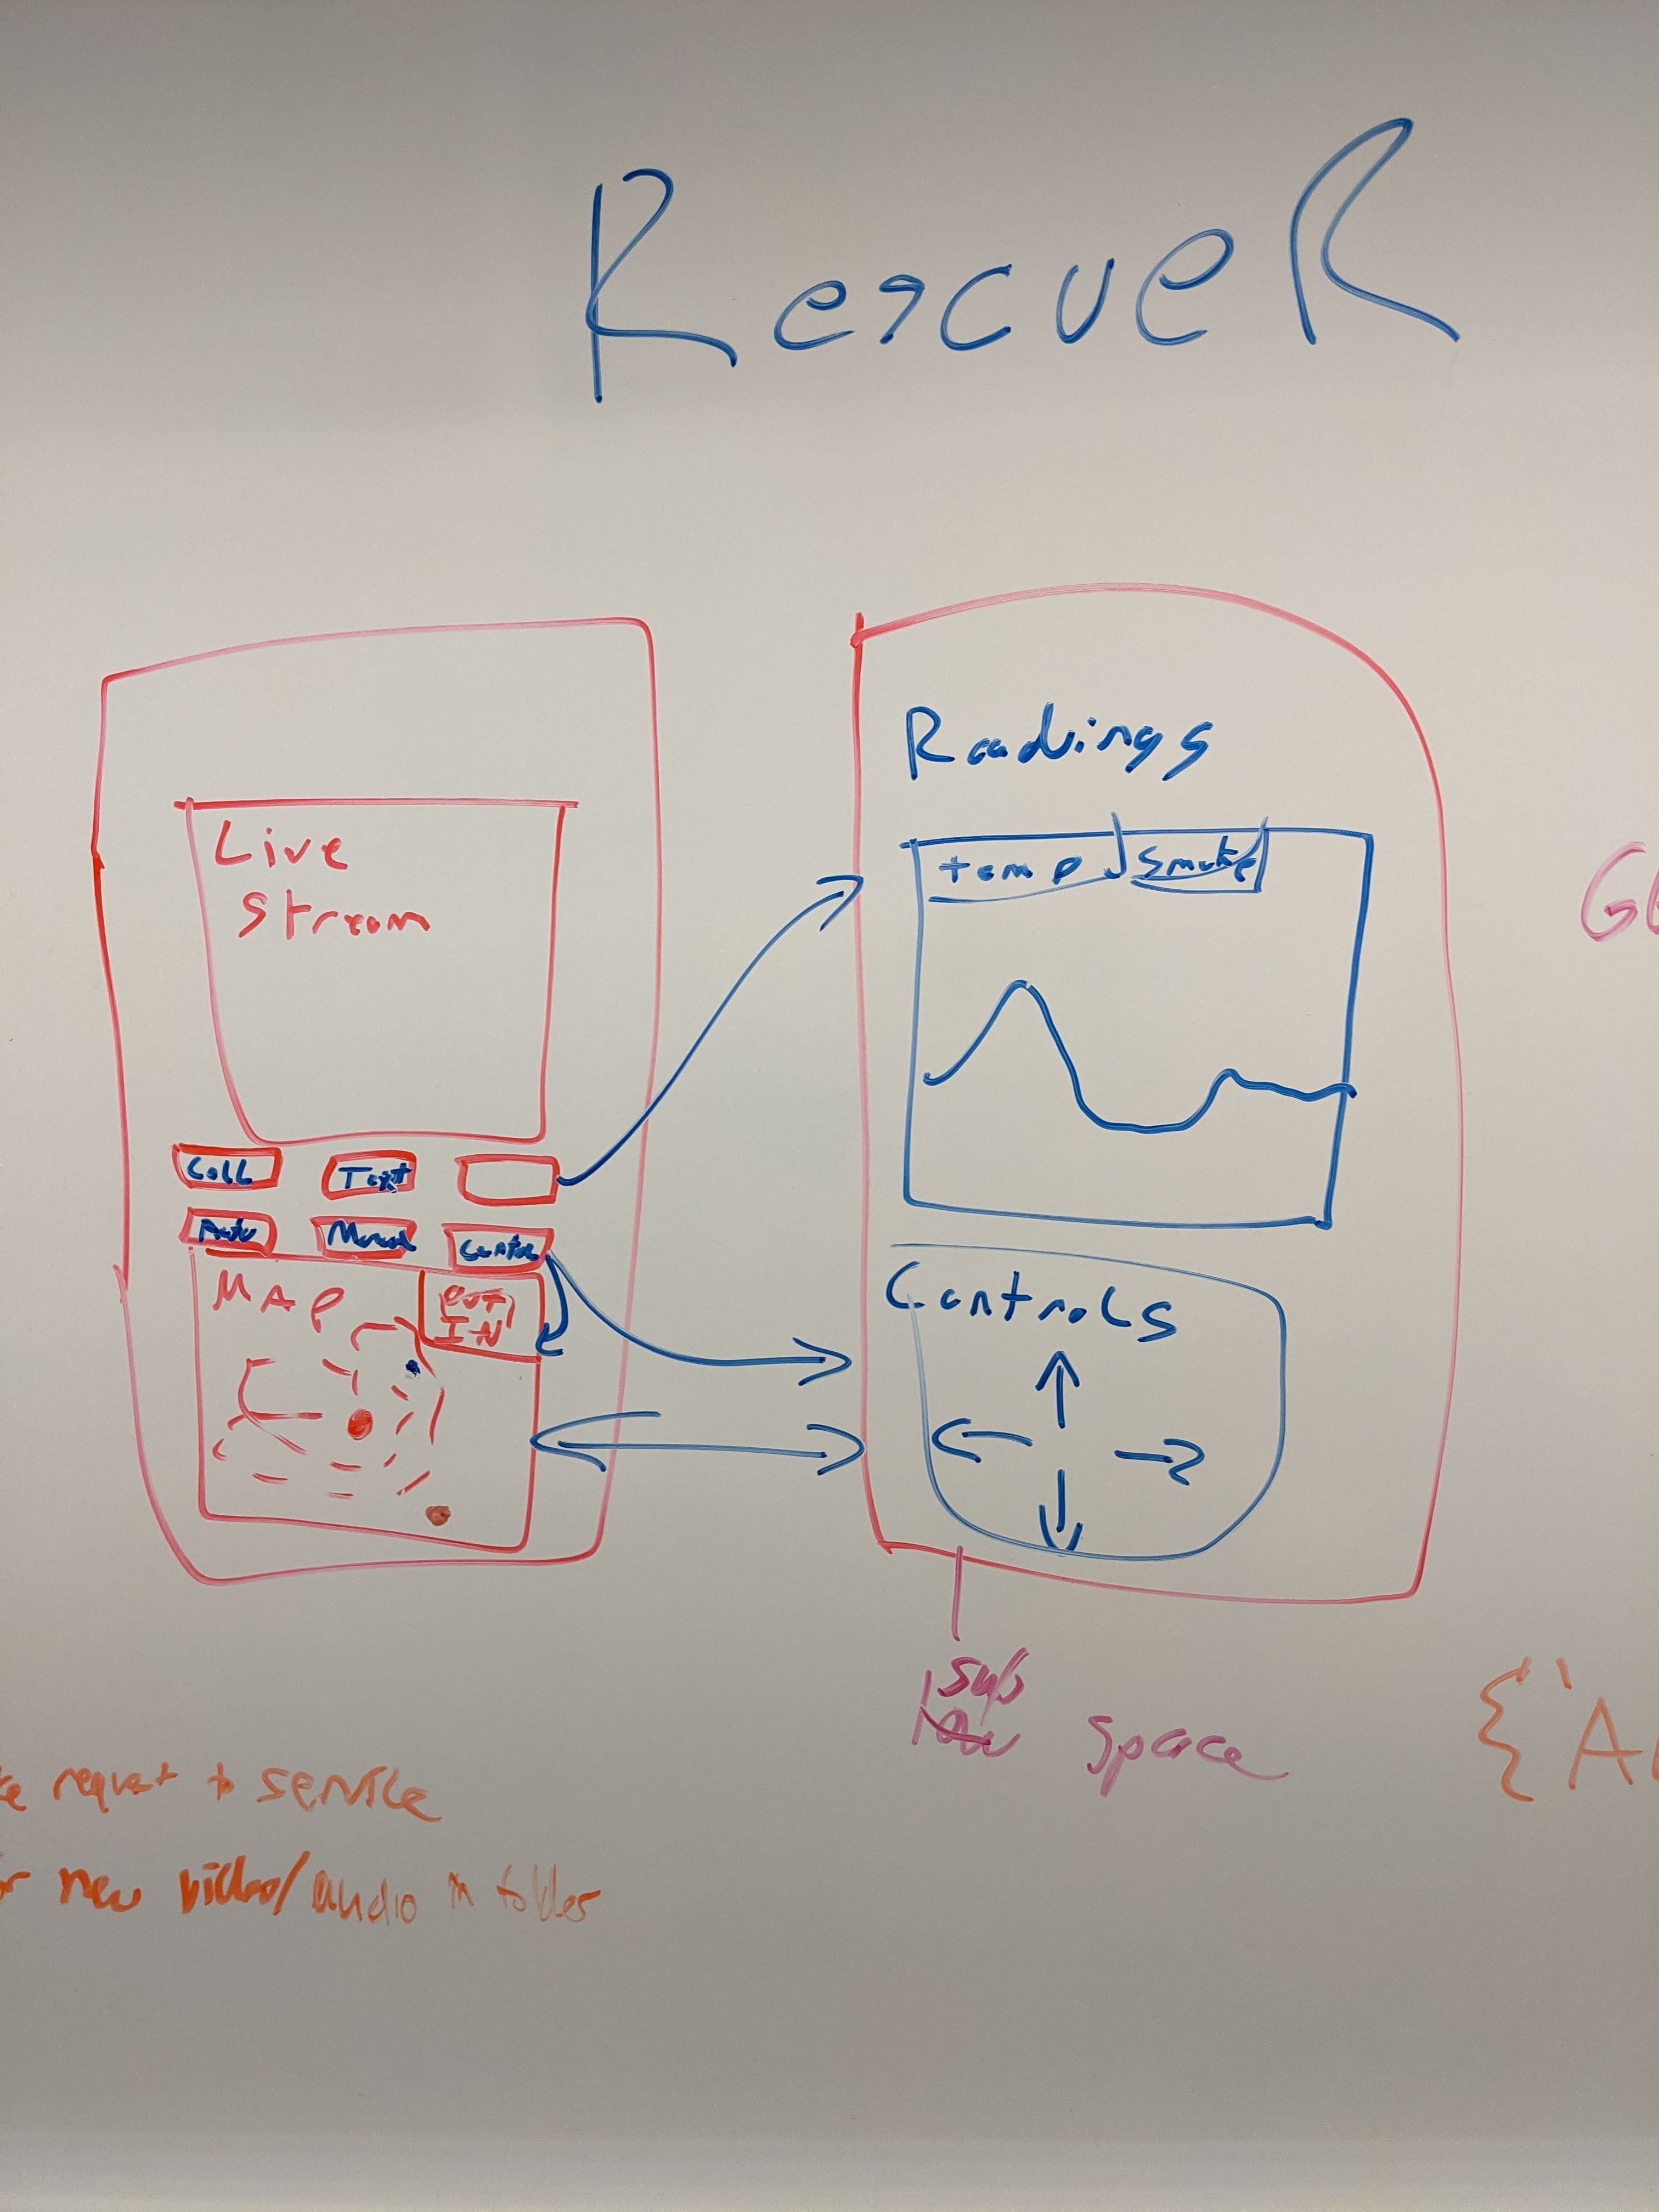 RescueR
Live
Stream
Call
Text
Auto
Manual
Control
MAP
OUT
IN
Readings
temp
Smoke
Controls
sub
space
request to service
new video/audio in folder
{'A